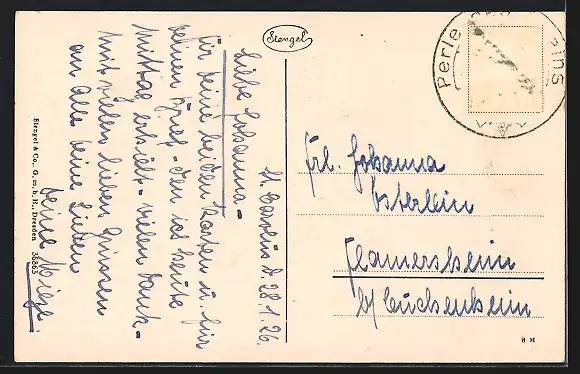 Stengel
Perle des ins
Frl. Johanna
Esterlein
Flamersheim
b/ Cuchenheim
St. d. 28.1.26.
Liebe Johanna –
für deine beiden Karten u. für
deinen Brief – den ich heute
Mittag erhielt – vielen Dank –
Mit vielen lieben Grüssen
an alle deine Lieben
deine
Stengel & Co., G. m. b. H., Dresden 36863
H M